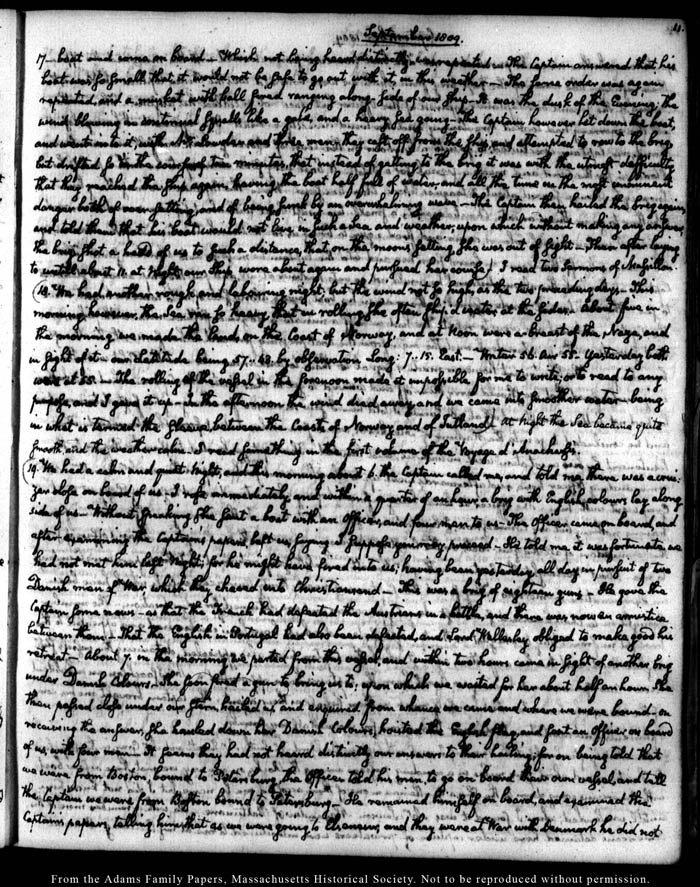 11.
September 1809.
17. boat and come on board. Which not being heard distinctly was repeated. The Captain answered that his
boat was so small that it would not be safe to go out with it in this weather. The same order was again
repeated, and a musket with ball fired ranging along side of our Ship. It was the dusk of the Evening; the
wind blowing in continual squalls like a gale, and a heavy Sea going. The Captain however let down the boat,
and went into it, with and three men; they cast off from the Ship, and attempted to row to the brig,
but drifted so in the course of two minutes, that instead of getting to the brig it was with the utmost difficulty
that they reached the Ship again, having the boat half full of water, and all the time in the most imminent
danger both of oversetting, and of being sunk by an overwhelming wave. The Captain then hailed the brig again,
and told them that his boat would not live in such a Sea and weather; upon which without making any answer,
the brig shot a head of us to such a distance, that on the moon's setting She was out of sight. Then after laying
to untill about 11. at Night, our Ship wore about again and pursued her course. I read two Sermons of Massillon.
18. We had another rough, and labouring night; but the wind not so high, as the two preceeding days. This
morning however, the Sea run so heavy, that in rolling She often ship'd water at the sides. About five in
the morning we made the land, on the Coast of Norway, and at Noon were a-breast of the Naze, and
in sight of it. our Latitude being 57.-48. by observation. Long: 7.-15. East. Water 56. Air 58. Yesterday both
were at 55. The rolling of the vessel in the forenoon made it impossible for me to write, or to read to any
purpose, and I gave it up. In the afternoon the wind died away, and we came into smoother water, being
in what is termed the Sleeve, between the Coasts of Norway and of Jutland. At Night the Sea became quite
smooth, and the weather calm. I read something in the first volume of the Voyage d'Anacharsis.
19. We had a calm and quiet Night, and this morning about 6. the Captain called me, and told me there was a crui-
zer close on board of us. I rose immediately, and within a quarter of an hour, a brig with English colours lay along
side of us. Without speaking She sent a boat with an Officer, and four men to us. The Officer came on board, and
after examining the Captain's papers left us, saying I suppose you may proceed. He told me it was fortunate we
had not met him last Night; for he might have fired into us; having been yesterday all day in pursuit of two
Danish men of War, which they chased into Christiansand. This was a brig of eighteen guns. He gave the
Captain some news. as that the French had defeated the Austrians in a battle, and there was now an armistice
between them. That the English in Portugal had also been defeated, and Lord Wellesley obliged to make good his
retreat. About 7. in the morning we parted from this vessel, and within two hours came in sight of another brig
under Danish Colours. She soon fired a gun to bring us to; upon which we waited for her about half an hour. She
then passed close under our stern, hailed us, and enquired from whence we came and where we were bound. on
receiving the answer, She hauled down her Danish Colours, hoisted the English flag, and sent an Officer on board
of us with four men. It seems they had not heard distinctly our answers to their hailing; for on being told that
we were from Boston, bound to Petersburg, the Officer told his men, to go on board their own vessel, and tell
the Captain we were from Boston bound to Petersburg. He remained himself on board, and examined the
Captain's papers, telling him, that as we were going to Elseneur, and they were at War with Denmark he did not
From the Adams Family Papers, Massachusetts Historical Society. Not to be reproduced without permission.